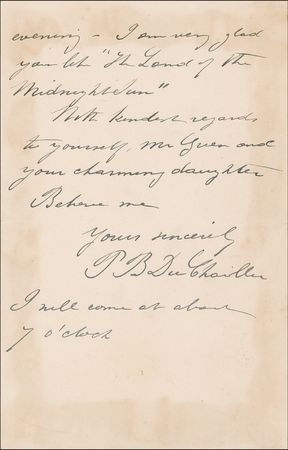 evening – I am very glad
you let "The Land of the
Midnight Sun"
With kindest regards
to yourself, Mr and
your charming daughter
Believe me
Yours sincerely
P B Du Chaillu
I will come at about
7 o'clock